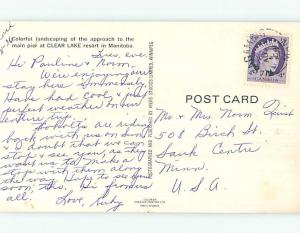 Colorful landscaping of the approach to the
main pier at CLEAR LAKE resort in Manitoba.
Tues. eve
Hi Pauline & Norm,
We're enjoying our
stay here immensely
Have had cool, but
perfect weather on our
entire trip.
are riding
back with us on Sun.
I doubt that we can
stop & see you as they
want us to make a
stop with them along
the way. Hope to see you
soon, tho. Hi from us
all. Love, Ruby
POST CARD
CANADA
Mr & Mrs. Norm
508 Birch St.
Sauk Centre
Minn.
U.S.A.